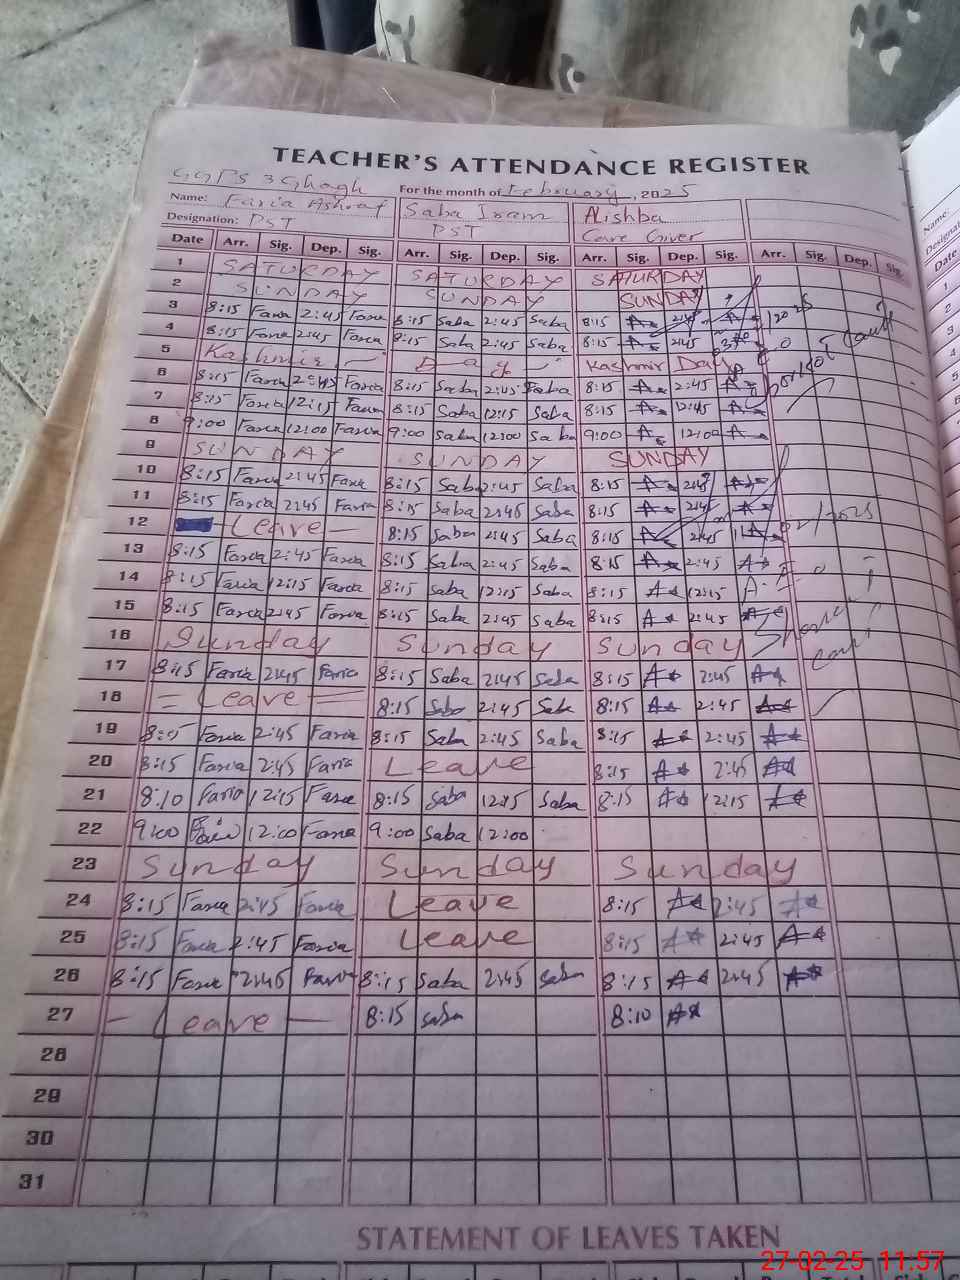 TEACHER'S ATTENDANCE REGISTER
GGPS 3 Ghagh For the month of February, 2025
Name: Faria Ashraf Saba Iram Alishba
Designation: PST PST Care Giver
Date Arr. Sig. Dep. Sig. Arr. Sig. Dep. Sig. Arr. Sig. Dep. Sig. Arr. Sig. Dep. Sig.
1 SATURDAY SATURDAY SATURDAY
2 SUNDAY SUNDAY SUNDAY
3 8:15 Faria 2:45 Faria 8:15 Saba 2:45 Saba 8:15 A 2:45 A
4 8:15 Faria 2:45 Faria 8:15 Saba 2:45 Saba 8:15 A 2:45
5 Kashmir - Day - Kashmir Day
6 8:15 Faria 2:45 Faria 8:15 Saba 2:45 Saba 8:15 A 2:45 A
7 8:15 Faria 12:15 Faria 8:15 Saba 12:15 Saba 8:15 A 12:45 A
8 9:00 Faria 12:00 Faria 9:00 Saba 12:00 Saba 9:00 A 12:00 A
9 SUNDAY SUNDAY SUNDAY
10 8:15 Faria 2:45 Faria 8:15 Saba 2:45 Saba 8:15 A 2:45 A
11 8:15 Faria 2:45 Faria 8:15 Saba 2:45 Saba 8:15 A 2:45 A
12 Leave - 8:15 Saba 2:45 Saba 8:15 A 2:45 A
13 8:15 Faria 2:45 Faria 8:15 Saba 2:45 Saba 8:15 A 2:45 A
14 8:15 Faria 12:15 Faria 8:15 Saba 12:15 Saba 8:15 A 12:15 A
15 8:15 Faria 2:45 Faria 8:15 Saba 2:45 Saba 8:15 A 2:45 A
16 Sunday Sunday Sunday
17 8:15 Faria 2:45 Faria 8:15 Saba 2:45 Saba 8:15 A 2:45 A
18 = Leave = 8:15 Saba 2:45 Saba 8:15 A 2:45 A
19 8:15 Faria 2:45 Faria 8:15 Saba 2:45 Saba 8:15 A 2:45 A
20 8:15 Faria 2:45 Faria Leave 8:15 A 2:45 A
21 8:10 Faria 12:15 Faria 8:15 Saba 12:15 Saba 8:15 A 12:15 A
22 9:00 Faria 12:00 Faria 9:00 Saba 12:00
23 Sunday Sunday Sunday
24 8:15 Faria 2:45 Faria Leave 8:15 A 2:45 A
25 8:15 Faria 2:45 Faria Leave 8:15 A 2:45 A
26 8:15 Faria 2:45 Faria 8:15 Saba 2:45 Saba 8:15 A 2:45 A
27 - Leave - 8:15 Saba 8:10 A
28
29
30
31
STATEMENT OF LEAVES TAKEN
27-02-25 11:57